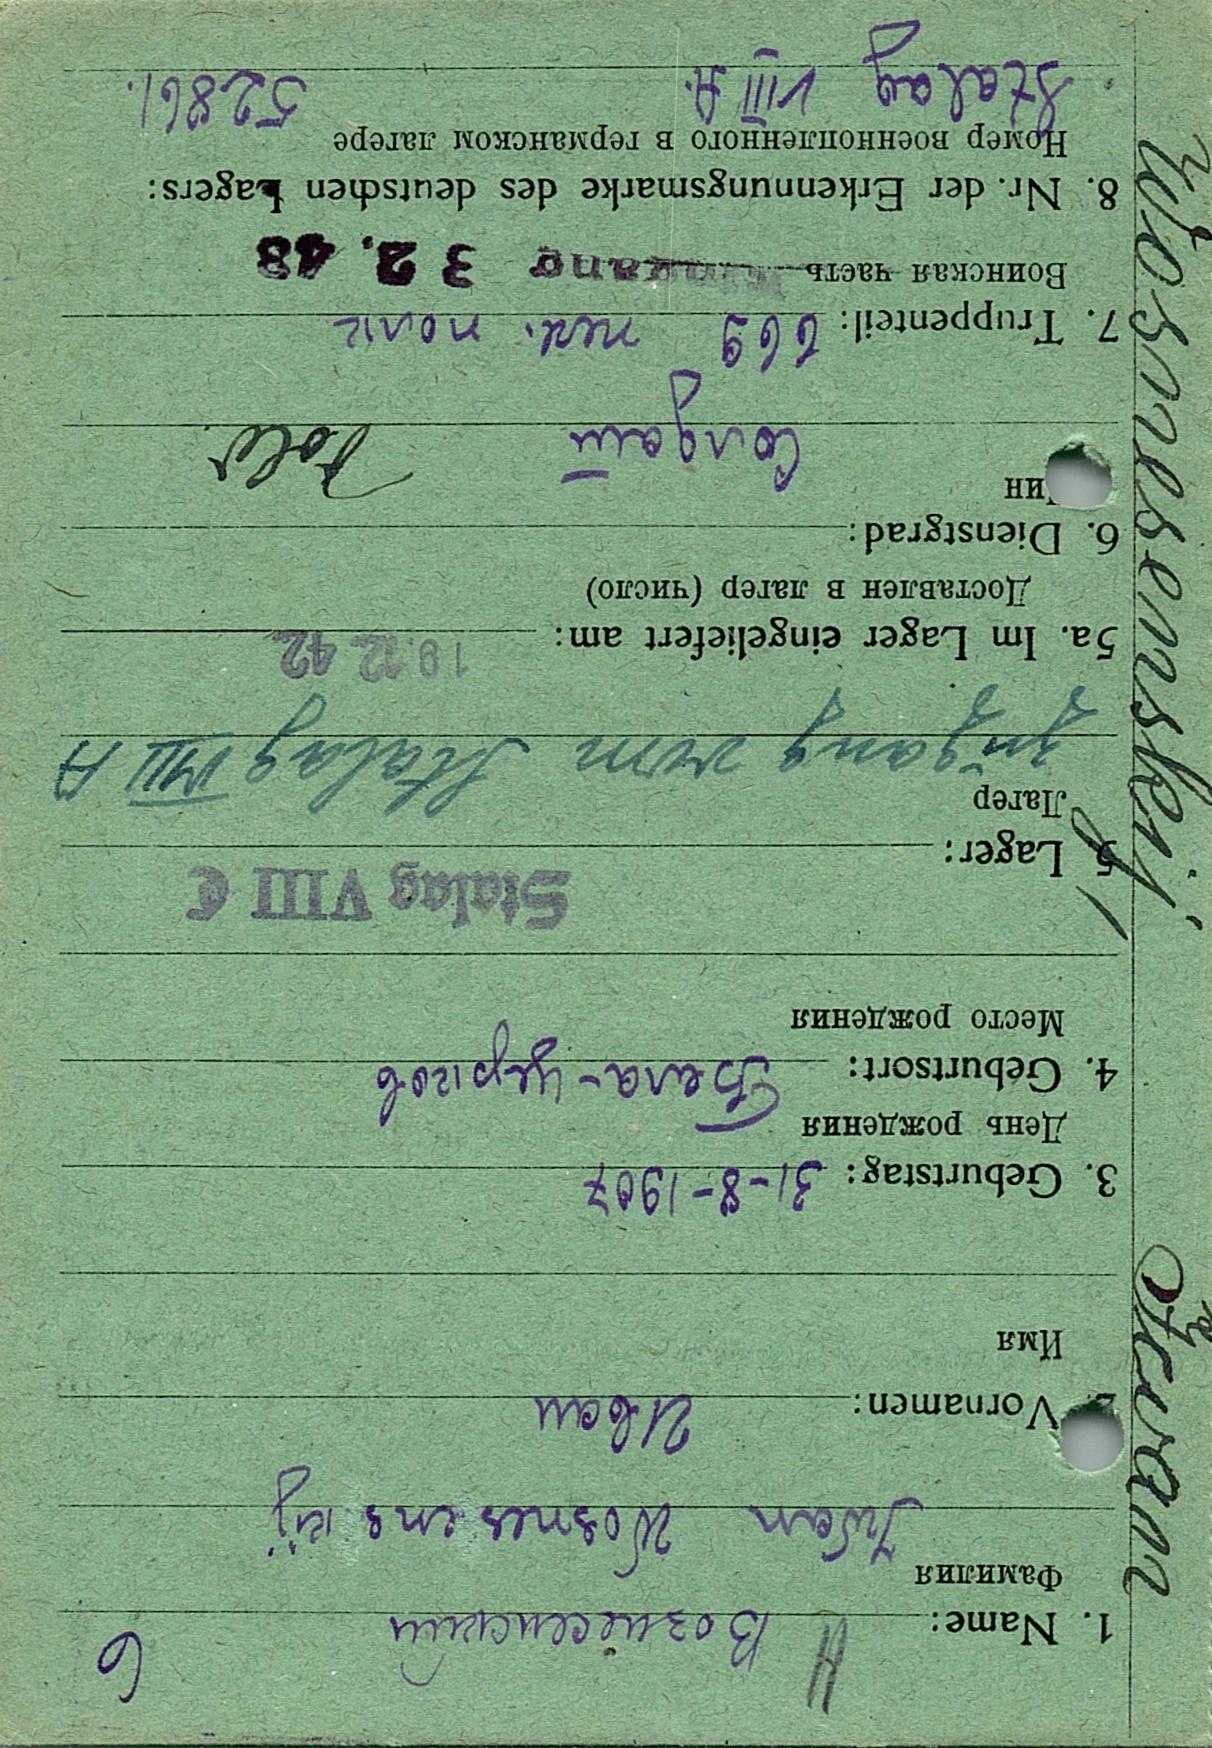 6
1. Name: Вознесенский
Фамилия
Iwan Wosnesenskij
2. Vornamen: Иван
Имя
3. Geburtstag: 31-8-1907
День рождения
4. Geburtsort: Бела-Церков
Место рождения
Stalag VIII C
5 Lager:
Лагер
Zugang vom Stalag VIII A
5a. Im Lager eingeliefert am: 19.12.42
Доставлен в лагер (число)
6. Dienstgrad:
Чин
Солдат Sold.
7. Truppenteil: 669 пех. полк
Воинская часть 3 2. 43
8. Nr. der Erkennungsmarke des deutschen Lagers:
Номер военнопленного в германском лагере
Stalag VIII A. 52861.
Iwan Wosnesenskij